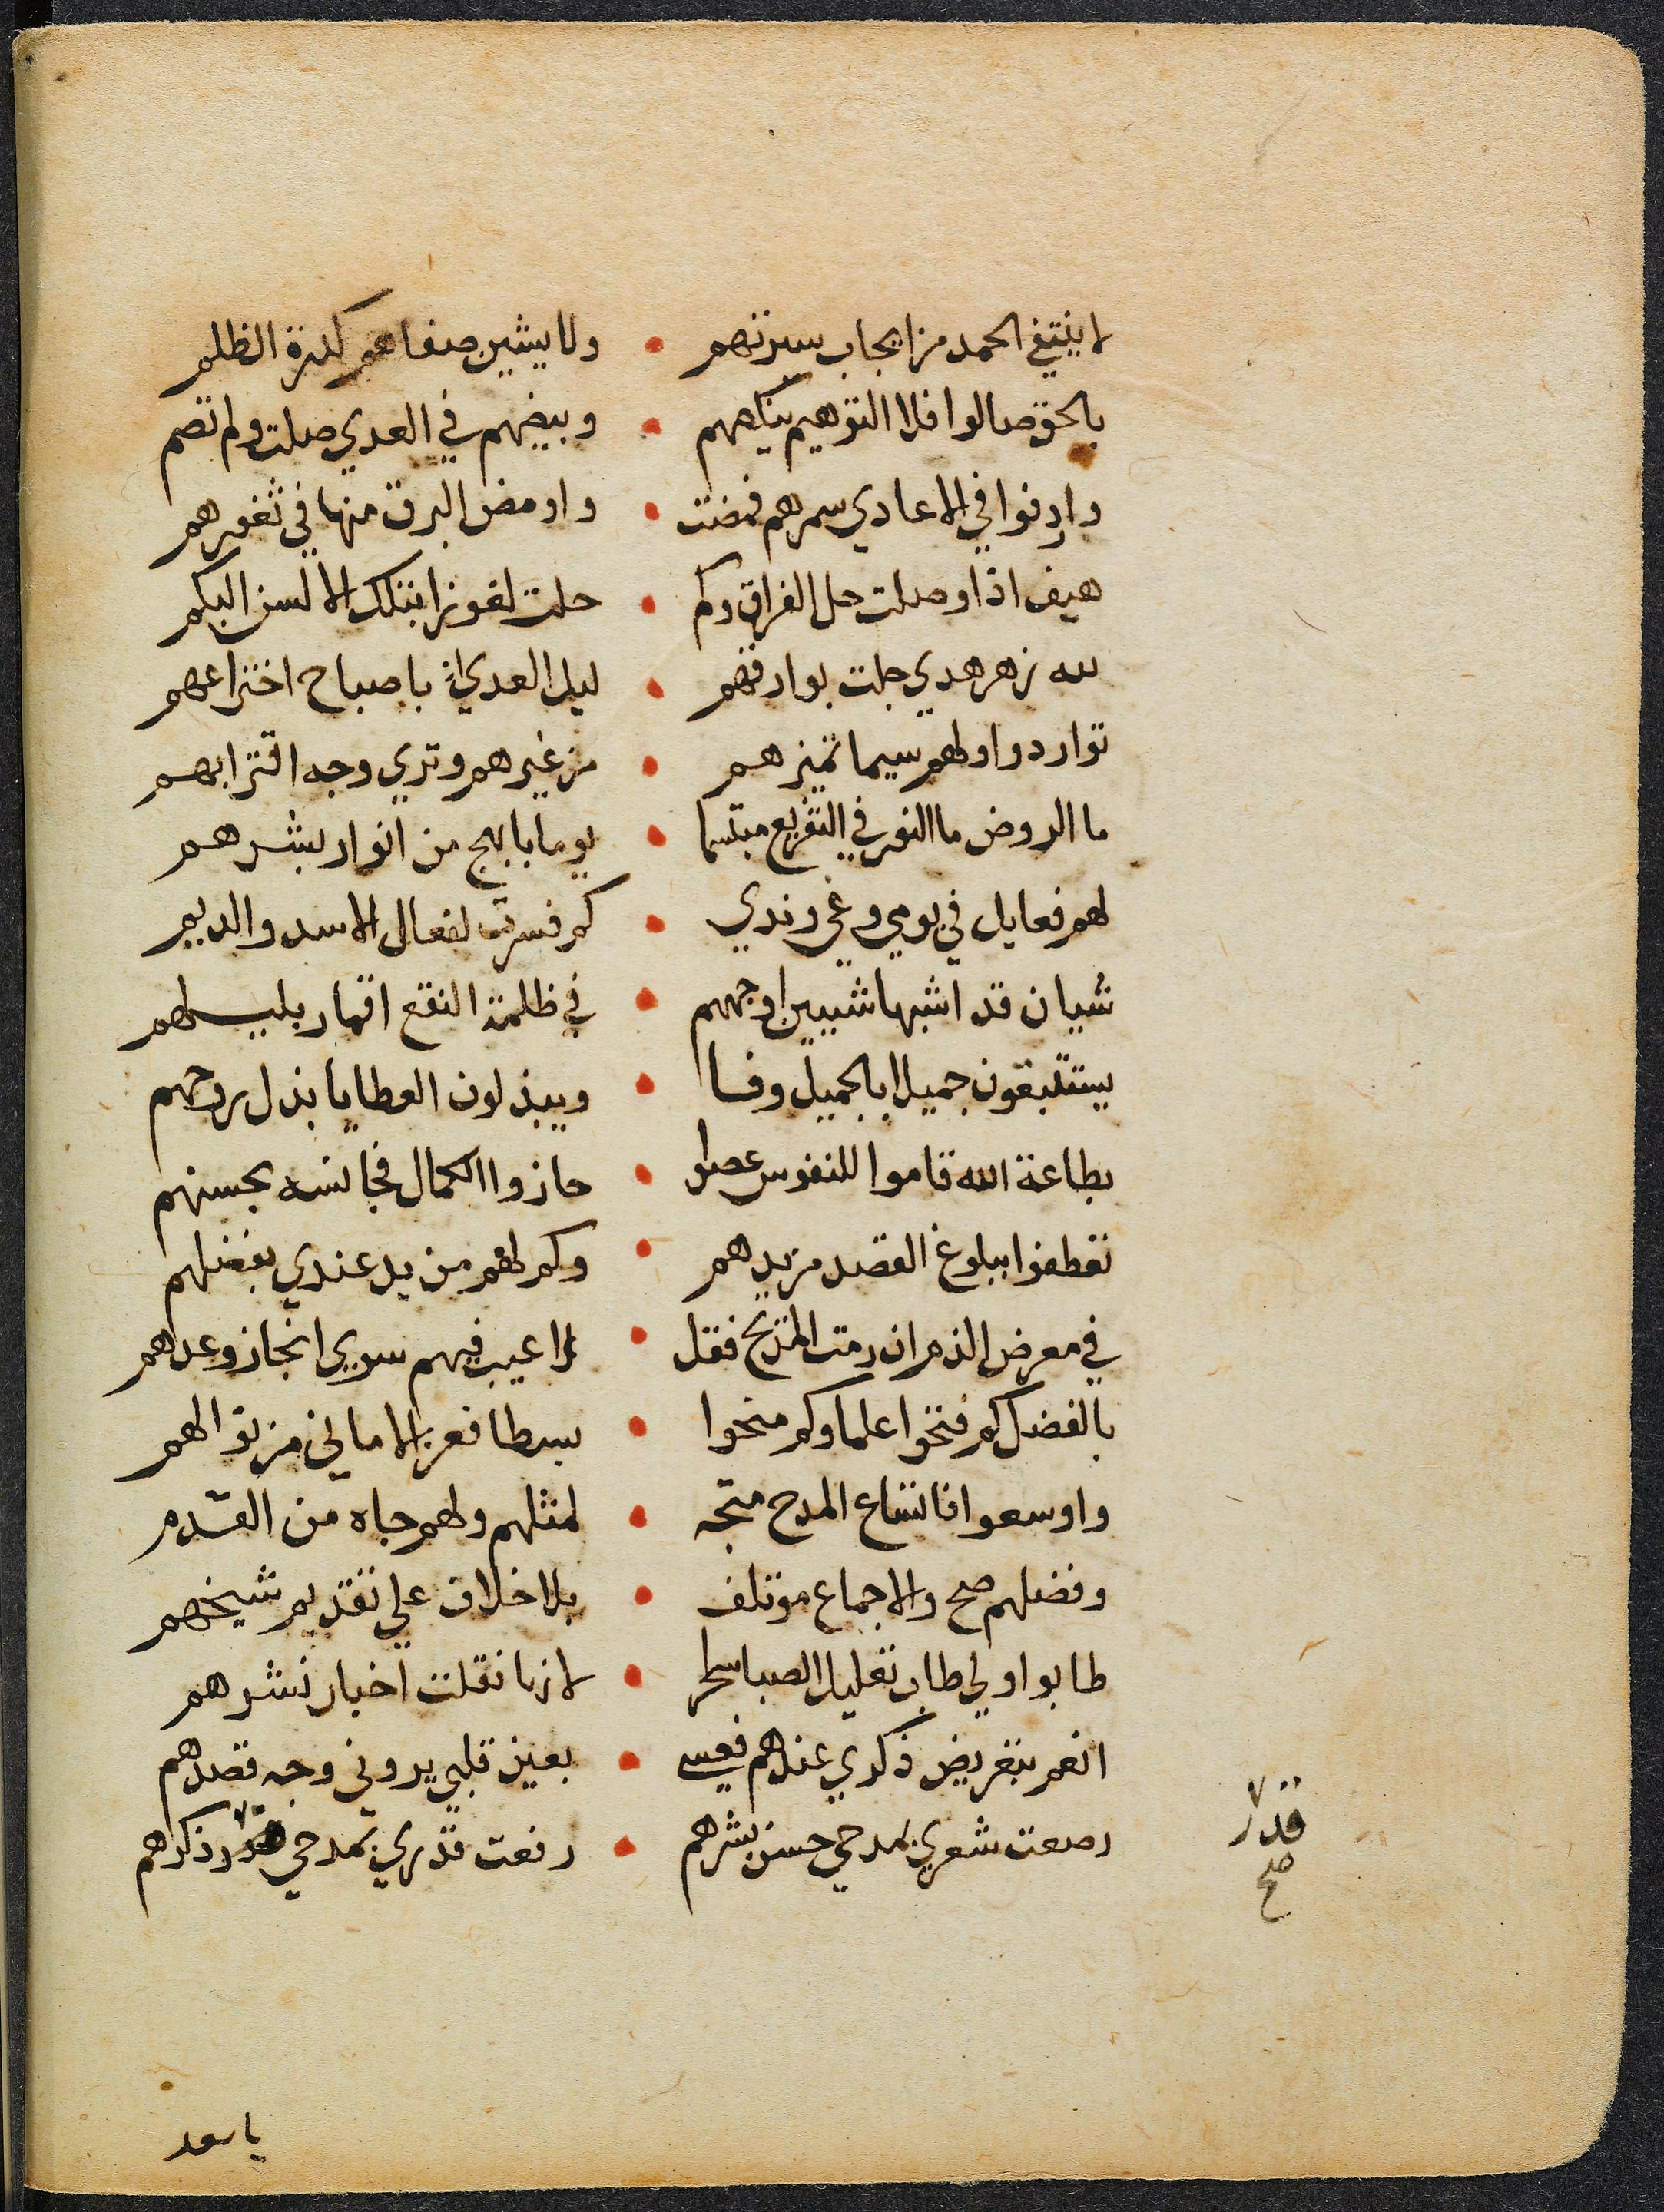 لا ينتفي الحمد من ايجاب سيرتهم • ولا يشين صفاهم كدرة الظلم
بالحق صالوا فلا التوهيم ينكيهم • وبيضهم في العدي صلت ولم تصم
واردفوا في الاعادي سمرهم فمضت • واومض البرق منها في ثغورهم
هيف اذا وصلت حل الفراق وكم • حلت لغوزا بتلك الالسن البكم
لله زهر هدي جلت بوارقهم • ليل العدي اذ با صباح اختراعهم
تواردوا ولهم سيما تميزهم • من غيرهم وتري وجه اقترابهم
ما الروض ما النور في التفريع مبتسما • يوما بابهج من انوار بشرهم
لهم فعايل في يومي وغي وندي • كم فسرت لفعال الاسد والديم
شيان قد اشبها شيين اوجههم • في ظلمة النقع اقمار بليلهم
يستتبعون جميلا بالجميل وفا • ويبذلون العطايا بذل روحهم
بطاعة الله قاموا للنفوس عصوا • حازوا الكمال فجانسه بحسنهم
تعطفوا ببلوغ القصد من يدهم • وكم لهم من يد عندي بفضلهم
في معرض الذم ان رمت المديح فقل • لا عيب فيهم سوي انجاز وعدهم
بالفضل كم فتحوا علما وكم منحوا • بسطا فعز الاماني من نوالهم
واوسعوا فاتساع المدح متجه • لمثلهم ولهم جاه من القدم
وفضلهم صح والاجماع مؤتلف • بلا خلاف علي تقديم شيخهم
طابوا ولي طاب تعليل الصبا سحرا • لانها نقلت اخبار نشرهم
انعم بتعريض ذكري عندهم فعسي • بعين قلبي يروني وجه قصدهم
رصعت شعري بمدحي حسن بشرهم • رفعت قدري بمدحي قدر ذكرهم
قدر
صح
يا سعد